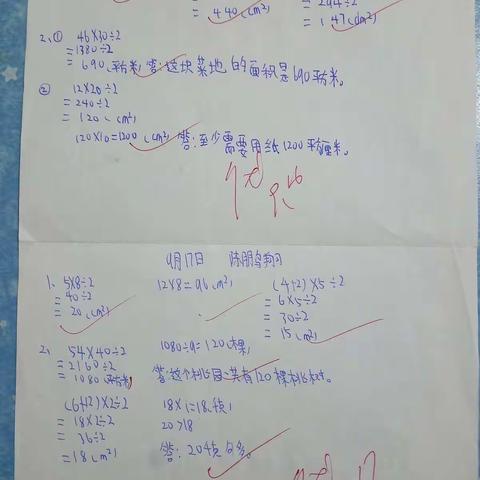 = 440 (cm²)
294÷2
= 147 (dm²)
2、① 46×30÷2
= 1380÷2
= 690(平方米) 答:这块菜地的面积是690平方米。
② 12×20÷2
= 240÷2
= 120 (cm²)
120×10=1200 (cm²) 答:至少需要用纸1200平方厘米。
优
9.16
9月17日 陈朋
1、 5×8÷2
= 40÷2
= 20 (cm²)
12×8=96 (m²)
(4+2)×5÷2
= 6×5÷2
= 30÷2
= 15 (m²)
2、 54×40÷2
= 2160÷2
= 1080(平方米)
1080÷9=120(棵)
答:这个桃园一共有120棵桃树。
(6+12)×2÷2
= 18×2÷2
= 36÷2
= 18 (m²)
18×1=18(棵)
20>18
答:20